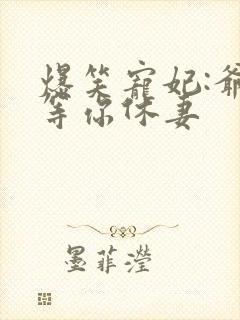 爆笑寵妃:爺
等你休妻
墨菲瀅